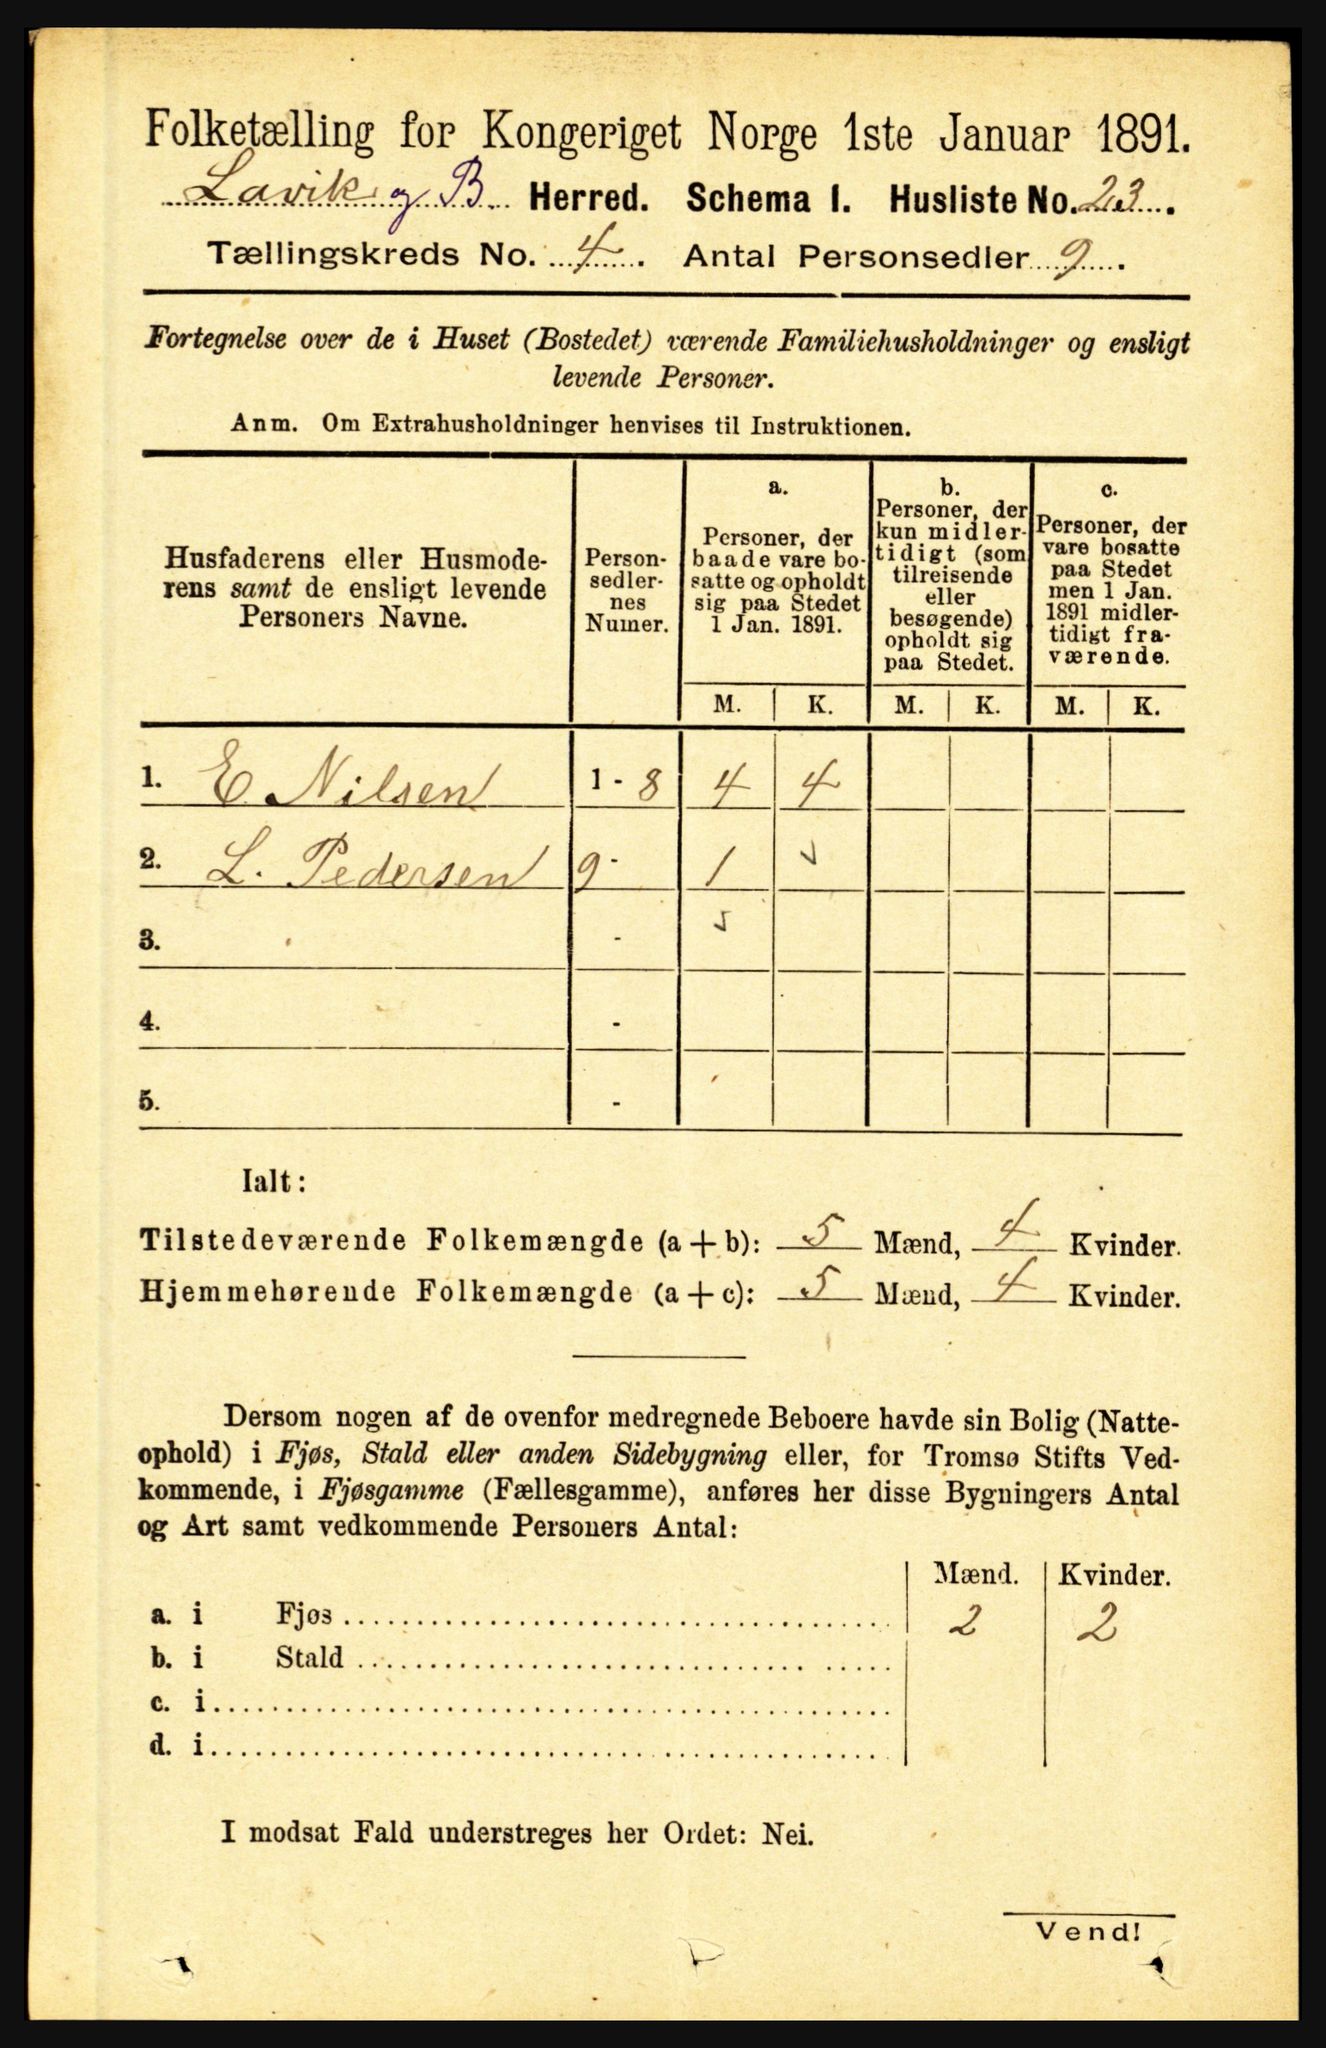 Folketælling for Kongeriget Norge 1ste Januar 1891.
Lavik og B Herred. Schema I. Husliste No. 23.
Tællingskreds No. 4. Antal Personsedler 9.
Fortegnelse over de i Huset (Bostedet) værende Familiehusholdninger og ensligt
levende Personer.
Anm. Om Extrahusholdninger henvises til Instruktionen.
Husfaderens eller Husmode-
rens samt de ensligt levende
Personers Navne.
Person-
sedler-
nes
Numer.
a.
Personer, der
baade vare bo-
satte og opholdt
sig paa Stedet
1 Jan. 1891.
b.
Personer, der
kun midler-
tidigt (som
tilreisende
eller
besøgende)
opholdt sig
paa Stedet.
c.
Personer, der
vare bosatte
paa Stedet
men 1 Jan.
1891 midler-
tidigt fra-
værende.
M. K. M. K. M. K.
1. E. Nilsen 1 - 8 4 4
2. L. Pedersen 9 - 1
3. -
4. -
5. -
Ialt:
Tilstedeværende Folkemængde (a + b): 5 Mænd, 4 Kvinder.
Hjemmehørende Folkemængde (a + c): 5 Mænd, 4 Kvinder.
Dersom nogen af de ovenfor medregnede Beboere havde sin Bolig (Natte-
ophold) i Fjøs, Stald eller anden Sidebygning eller, for Tromsø Stifts Ved-
kommende, i Fjøsgamme (Fællesgamme), anføres her disse Bygningers Antal
og Art samt vedkommende Personers Antal:
Mænd. Kvinder.
a. i Fjøs 2 2
b. i Stald
c. i
d. i
I modsat Fald understreges her Ordet: Nei.
Vend!